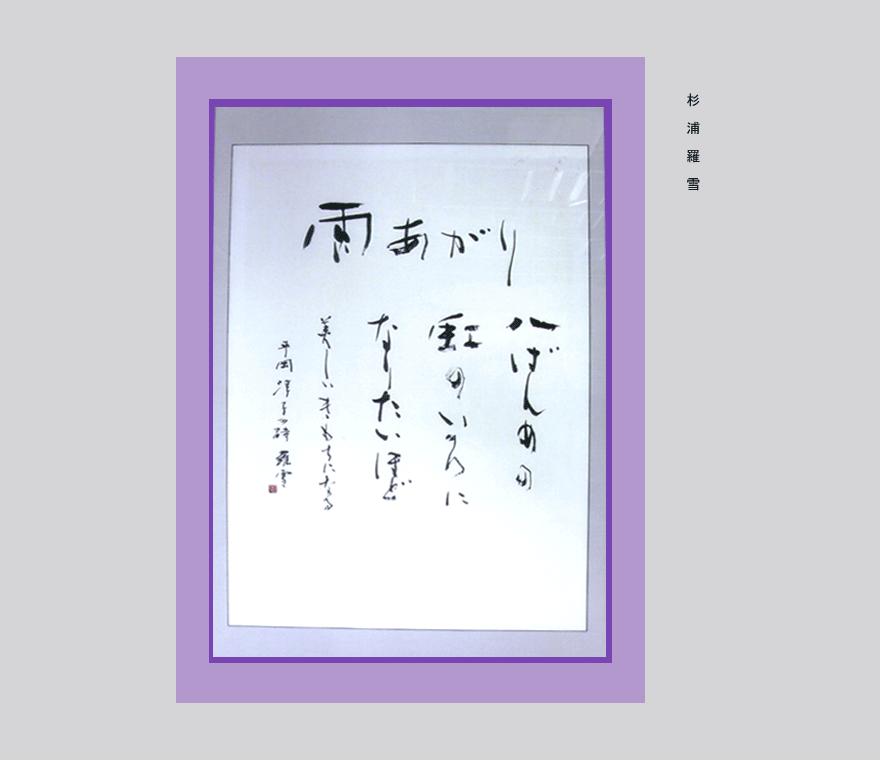 杉浦羅雪
雨あがり
八ばんめの
虹のいろに
なりたいほど
美しいきもちになる
平岡淳子の詩 羅雪